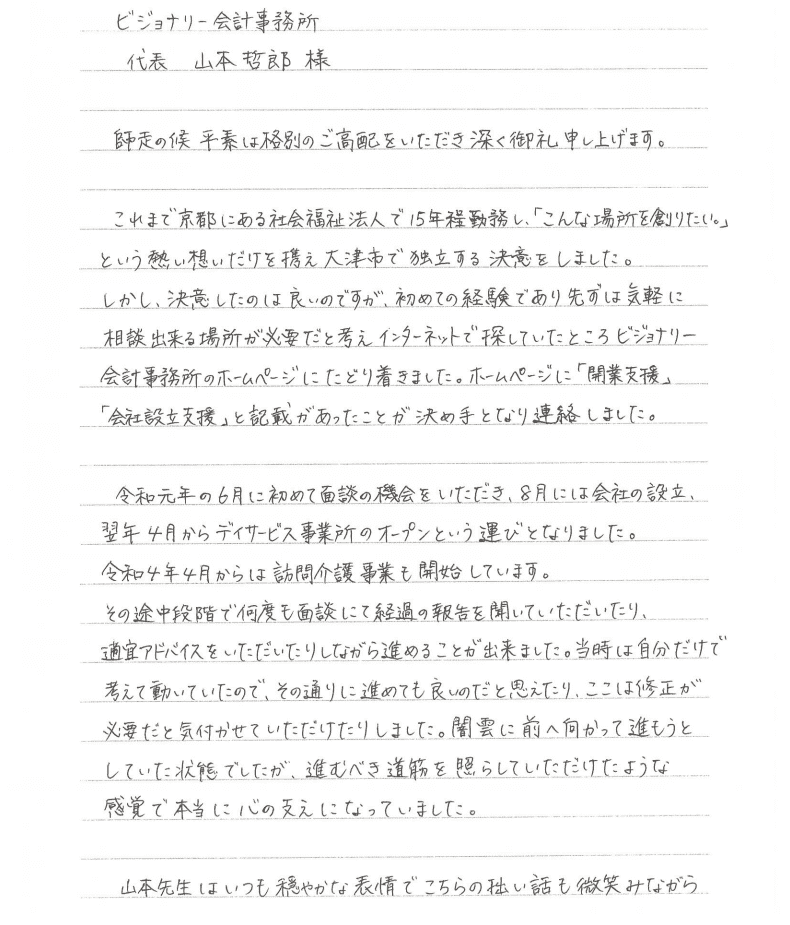 ビジョナリー会計事務所
代表 山本哲郎 様
師走の候 平素は格別のご高配をいただき深く御礼申し上げます。
これまで京都にある社会福祉法人で15年程勤務し、「こんな場所を創りたい。」
という熱い想いだけを携え大津市で独立する決意をしました。
しかし、決意したのは良いのですが、初めての経験であり先ずは気軽に
相談出来る場所が必要だと考えインターネットで探していたところビジョナリー
会計事務所のホームページにたどり着きました。ホームページに「開業支援」
「会社設立支援」と記載があったことが決め手となり連絡しました。
令和元年の6月に初めて面談の機会をいただき、8月には会社の設立、
翌年4月からデイサービス事業所のオープンという運びとなりました。
令和4年4月からは訪問介護事業も開始しています。
その途中段階で何度も面談にて経過の報告を聞いていただいたり、
適宜アドバイスをいただいたりしながら進めることが出来ました。当時は自分だけで
考えて動いていたので、その通りに進めても良いのだと思えたり、ここは修正が
必要だと気付かせていただけたりしました。闇雲に前へ向かって進もうと
していた状態でしたが、進むべき道筋を照らしていただけたような
感覚で本当に心の支えになっていました。
山本先生はいつも穏やかな表情でこちらの拙い話も微笑みながら